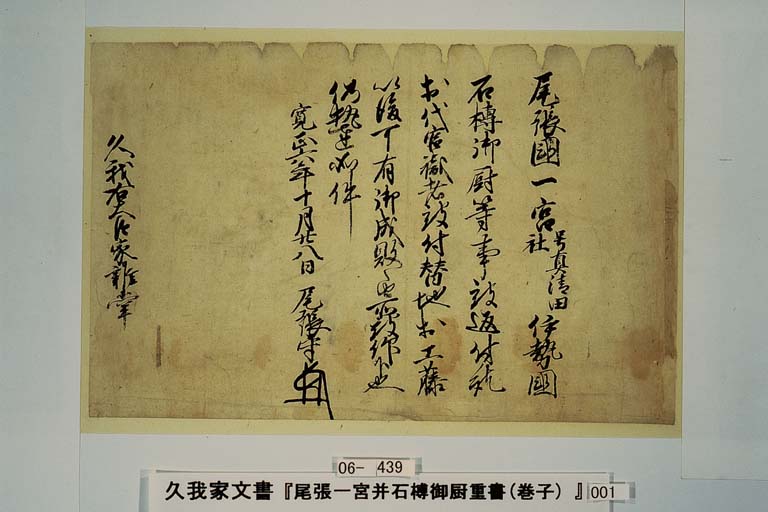 尾張國一宮号真清田社伊勢國
石榑御厨等事被返付訖
於代官職者被付替地於工藤
以後可有御成敗之由所候也
仍執達如件
寛正六年十月廿八日 尾張守
久我右大将家雑掌
06- 439
久我家文書『尾張一宮并石榑御厨重書(巻子)』001